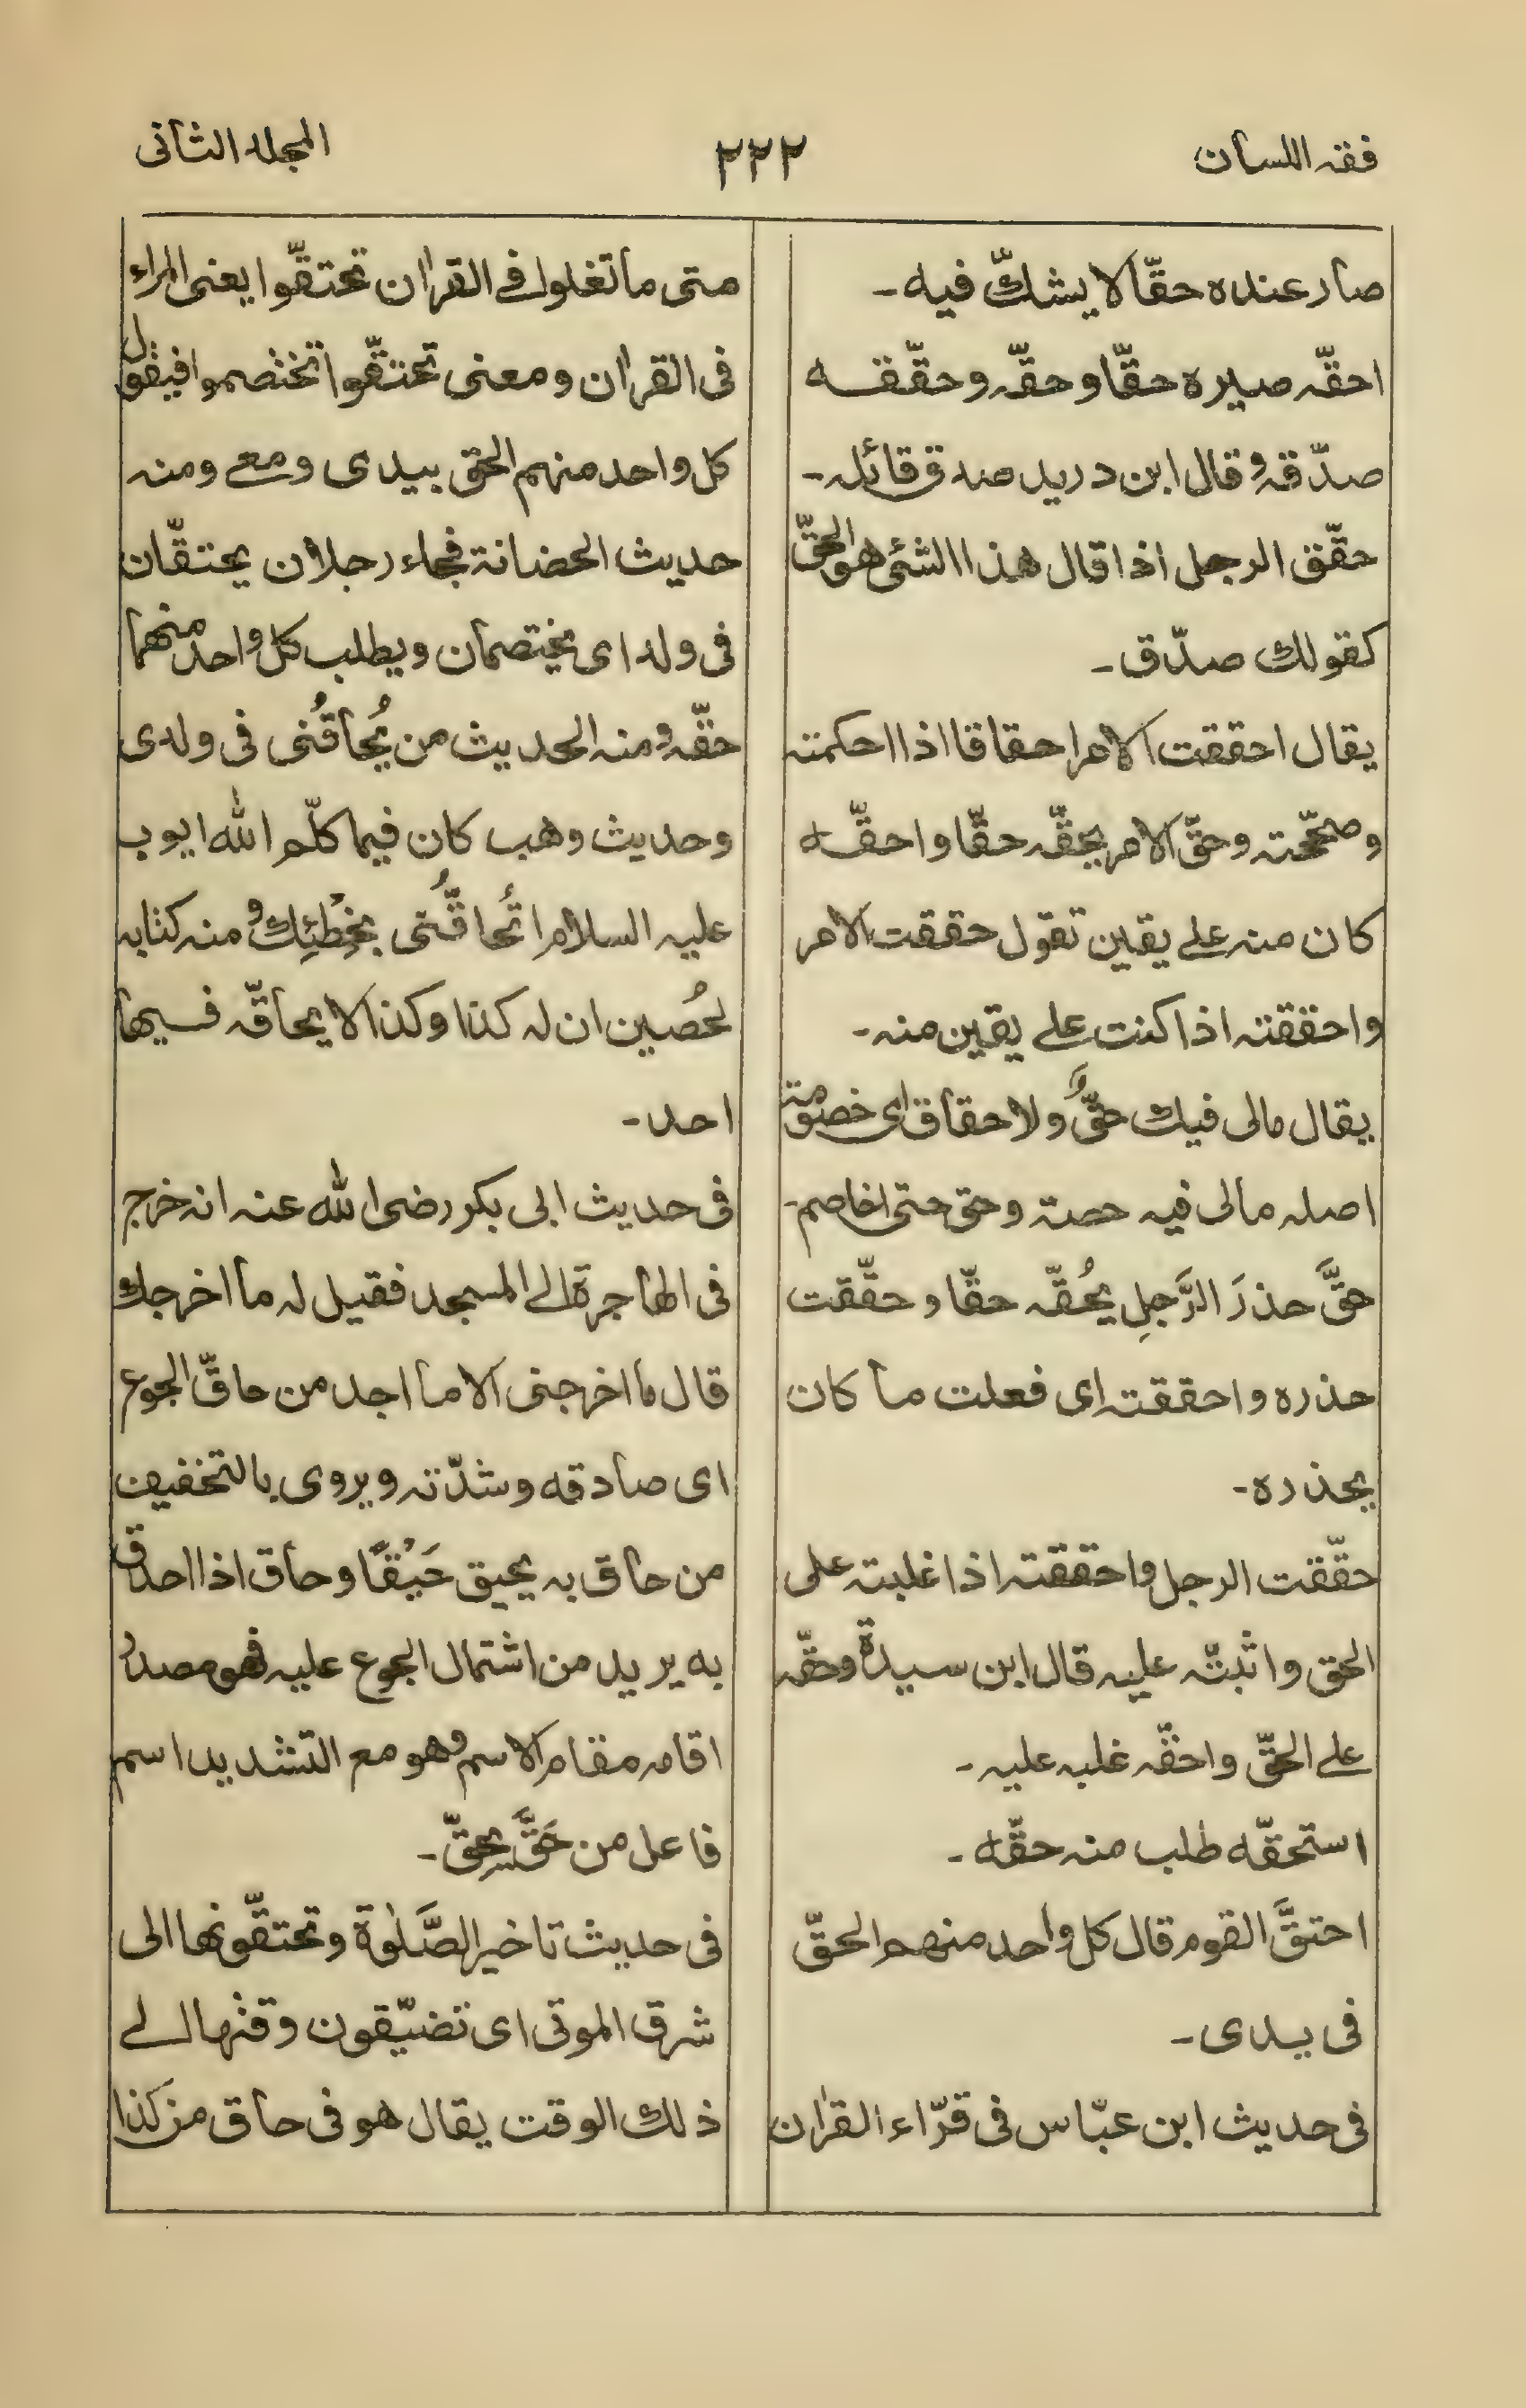 فقہ اللسان
۲۲۲
المجلد الثانی
صار عندہ حقّا لا یشكّ فیہ۔
احقّہ صیرہ حقّا و حقّہ و حقّقہ
صدّقہ و قال ابن درید صدق قائلہ۔
حقّق الرجل اذا قال هذا الشئی هو الحقّ
کقولك صدّق۔
یقال احققت الامر احقاقا اذا احکمتہ
و صححّتہ و حقّ الامر یحقّہ حقّا و احقّہ
کان منہ علے یقین تقول حققت الامر
و احققتہ اذا کنت علے یقین منہ۔
یقال مالی فیك حقٌّ و لا حقاق ای خصومۃ
اصلہ مالی فیہ حصۃ و حق حتی اخاصم۔
حقَّ حذرَ الرَّجلِ یحُقّہ حقّا و حقّقت
حذرہ و احققتہ ای فعلت ما کان
یحذرہ۔
حقّقت الرجل و احققتہ اذا غلبتہ علی
الحق و اثبتّہ علیہ قال ابن سیدۃ و حقّہ
علے الحقّ و احقّہ غلبہ علیہ۔
استحقّہ طلب منہ حقّہ۔
احتقَّ القوم قال کل واحد منهم الحقّ
فی یدی۔
فی حدیث ابن عبّاس فی قرّاء القرٰان
متی ما تغلوا فے القرٰان تحتقّوا یعنی المراء
فی القرٰان و معنی تحتقّوا تختصموا فیقول
کل واحد منہم الحق بیدی و معے و منہ
حدیث الحضانۃ فجاء رجلان یحتقّان
فی ولد ای یختصمان و یطلب کل واحد منهما
حقّہ و منہ الحدیث من یُحاقُّنی فی ولدی
و حدیث وهب کان فیما کلّم اللہ ایوب
علیہ السلام اتُحاقُّنی بخِطْئِك و منہ کتابہ
لحُصین ان لہ کذا و کذا لا یحاقّہ فیها
احد۔
فی حدیث ابی بکر رضی اللہ عنہ انہ خرج
فی الهاجرۃ الے المسجد فقیل لہ ما اخرجك
قال ما اخرجنی الا ما اجد من حاقّ الجوع
ای صادقہ و شدّتہ و یروی بالتخفیف
من حاق بہ یحیق حَیْقًا و حاق اذا احدق
بہ یرید من اشتمال الجوع علیہ فهو مصدر
اقامہ مقام الاسم و هو مع التشدید اسم
فاعل من حَقَّ یحِقّ۔
فی حدیث تاخیر الصَّلٰوۃ و تحتقّونها الی
شرق الموتی ای تضیّقون وقتها الے
ذلك الوقت یقال هو فی حاق من کذا